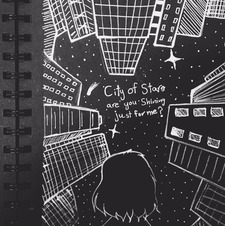 City of Stars
are you shining
just for me?